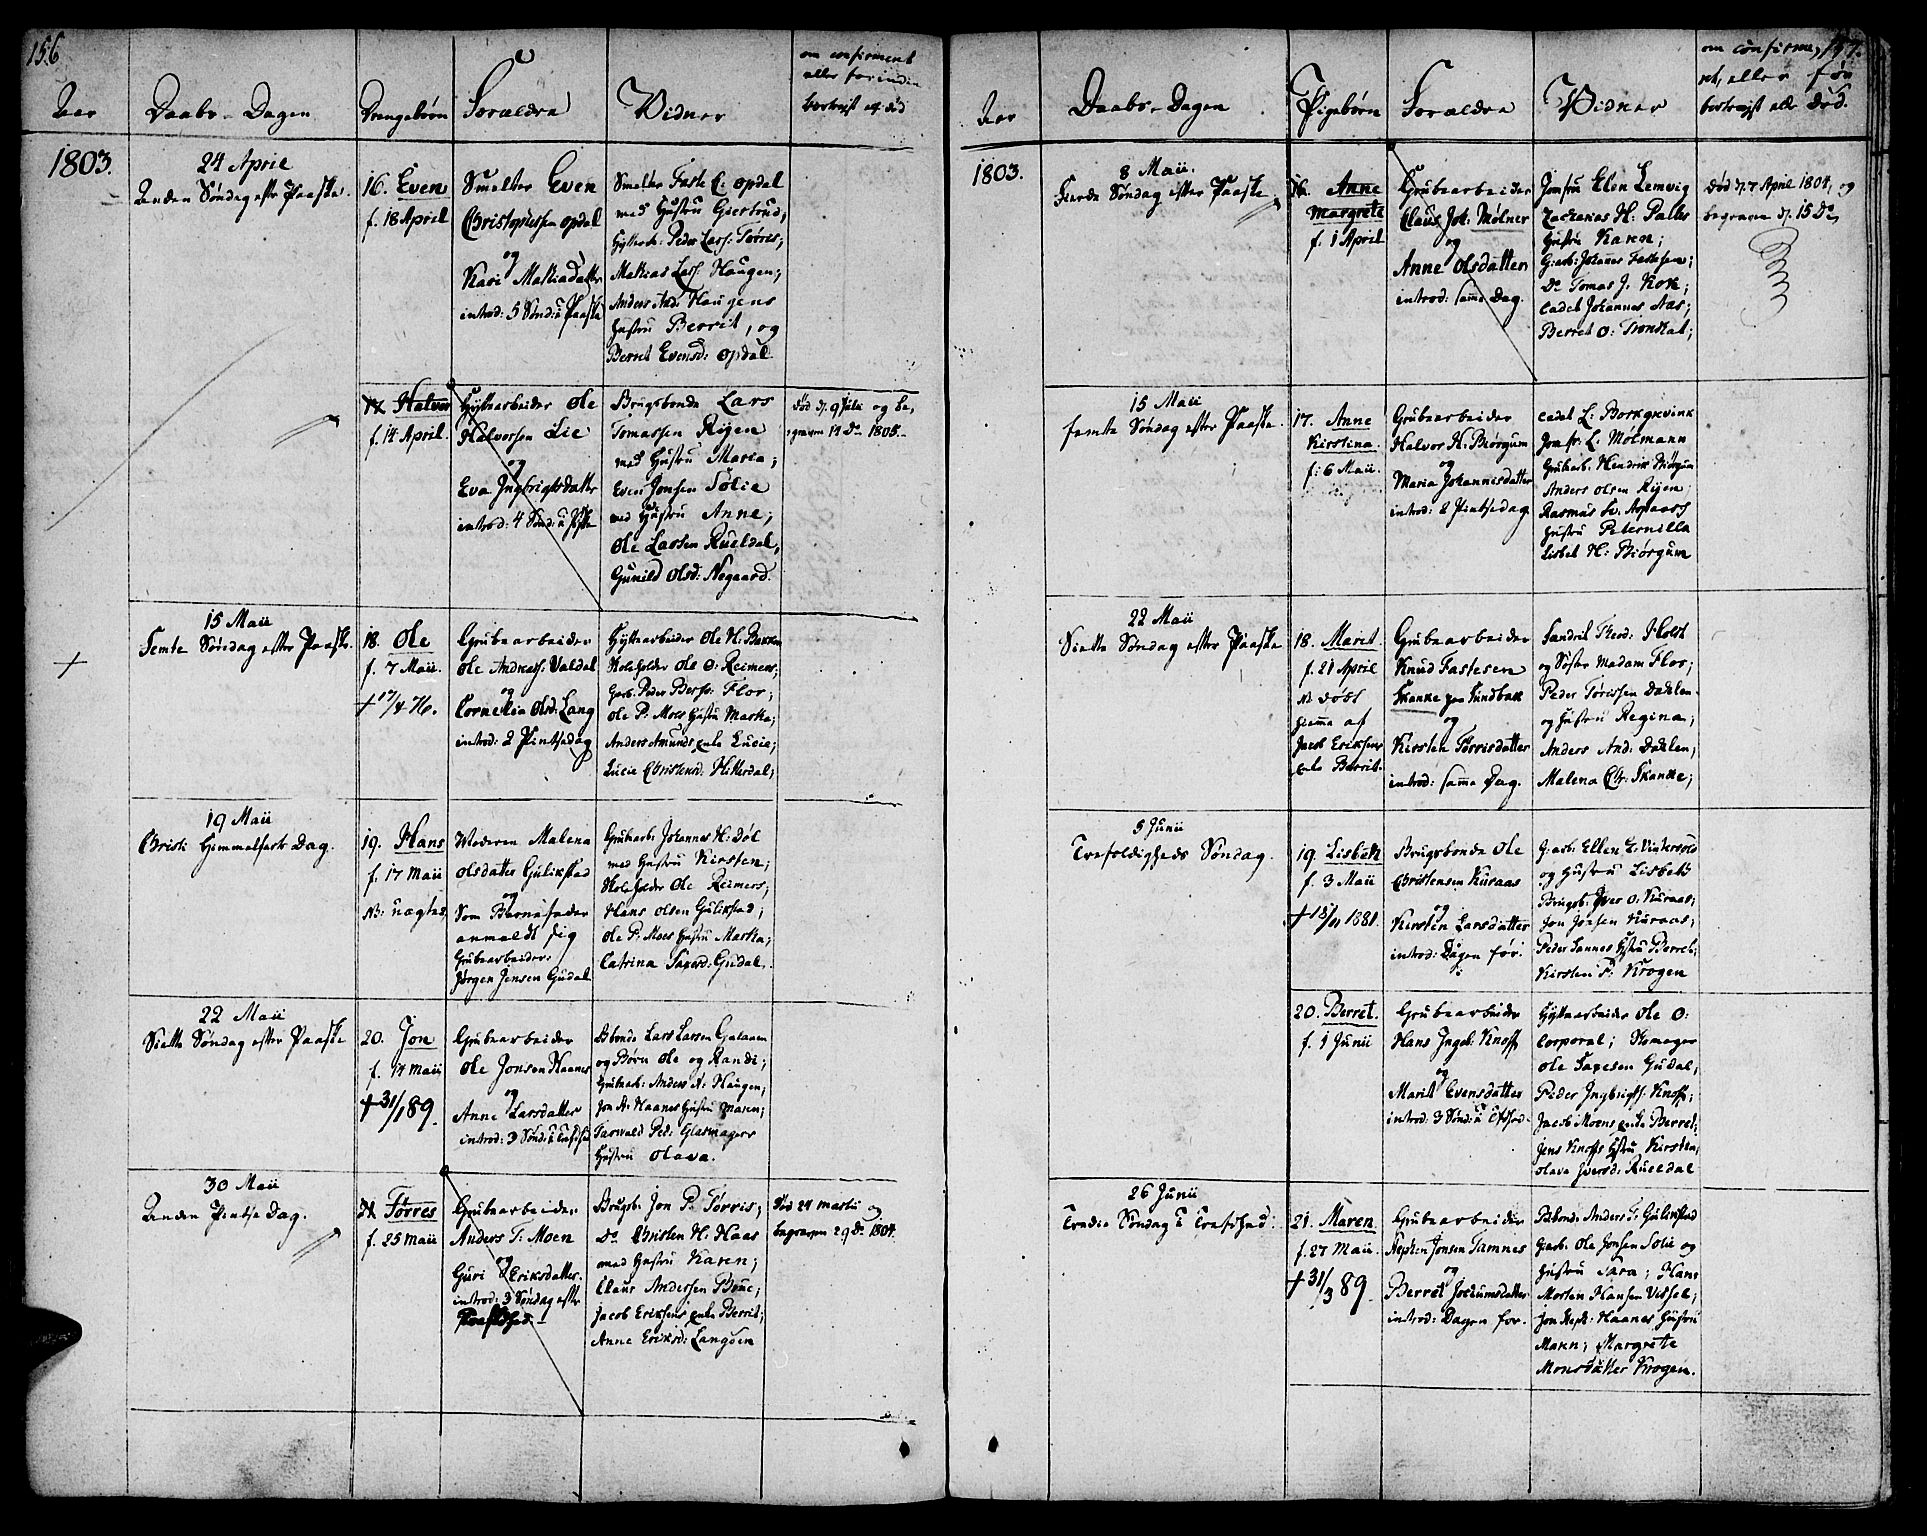 156
Aar
Daabs-Dagen
Drengebørn
Forældre
Vidner
om confirmert
eller forinden
bortreist el. død
1803.
24 April
Anden Søndag eftr Paaske.
16. Even
f. 18 April
Smelter Even
Christophersen Opdal
og
Kari Mathiadatter
introd: 5 Sønd: a Paaske
Smelter Faste C: Opdal
med Hustru Giertrud;
Hyttearb: Peder Lars: Tørres;
Mathias Lars: Haugen;
Anders And: Haugens
Hustru Berrit, og
Berret Evensd: Opdal
17. Halvor
f. 14 April.
Hyttearbeider Ole
Halvorsen Lie
og
Eva Ingbrigtsdatter
introd: 4 Sønd: a Paaske
Brugsbonde Lars
Tomassen Ryen
med Hustru Maria;
Even Jonsen Sølie
med Hustru Anne;
Ole Larsen Rueldal,
Gunild Olsd: Negaard.
død d. 9 Juli og be,
graven 14 Do 1805.
15 Maii
Femte Søndag efter Paaske.
18. Ole
f. 7 Maii.
+ 17/4 76.
Grubearbeider
Ole Andreas: Valdal
og
Cornelia Olsd: Lang
introd: 2 Pintsedag
Hyttearbeider Ole H: Bakken
Skoleholder Ole O: Reimers;
Garb. Peder Berfs: Flor;
Ole P: Moes Hustru Marta;
Anders Amunds enke Lucie;
Lucie Christensd: Hitterdal;
19 Maii
Christi Himmelfarts Dag.
19. Hans
f. 17 Maii
NB: uægte.
Moderen Malena
Olsdatter Gulikstad
og
Som Barnefader
anmeldt sig
Grubearbeider
Jørgen Jensen Gudal
Grubearb: Johannes H: Døl
med Hustru Kirsten;
Skoleholder Ole Reimers;
Hans Olsen Gulikstad;
Ole P: Moes Hustru Marta;
Catrina Saxesd: Gudal.
22 Maii
Siette Søndag efter Paaske
20. Jon
f. 14 Maii
+ 31/1 89.
Grubearbeider
Ole Jonsen Haanes
og
Anne Larsdatter
introd: 3 Sønd: a Trefshed
Bbonde Lars Larsen Galaaen
og Børn Ole og Randi;
Grubearb: Anders A: Haugen;
Jon A: Haanes Hustru Maren;
Tarvald Ped: Glasmagers
Hustru Olava.
30 Maii
Anden Pintse Dag.
21. Tørres
f. 25 Maii
Grubearbeider
Anders T: Moen
og
Guri Eriksdatter.
introd: 3 Søndag efter
Trefshed.
Brugsb. Jon P: Tørris;
Do Christen H: Haas
med Hustru Karen;
Claus Andersen Boue;
Jacob Eriksens enke Berrit;
Anne Eriksd: Langøen
død 24 Martii og
begraven 29 Do 1804.
157.
Aar
Daabs-Dagen
Pigebørn
Forældre
Vidner
om confirme,
ret, eller før
bortreist eller død.
1803.
8 Maii.
Fierde Søndag efter Paaske
16. Anne
Margrete
f. 1 April
Grubearbeider
Claus Joh: Mølner
og
Anne Olsdatter
introd: samme Dag.
Jomfru Elen Lemvig
Zacharias H: Pauls
Hustru Karen;
Giarb: Johannes Fastesen;
Do Tomas J. Kok;
Cadet Johannes Aas;
Berret O: Trondkal;
død d. 7 April 1804, og
begraven d. 15 Do
15 Maii
femte Søndag efter Paaske.
17. Anne
Kirstina.
f. 6 Maii.
Grubearbeider
Halvor H: Biørgum
og
Maria Johannisdatter
introd: 2 Pintsedag
Cadet L: Borkgrevink
Jomfr: L. Mølmann
Grubarb. Hendrik Biørgum
Anders Olsen Ryen
Rasmus Aspaas
Hustru Peternilla
Lisbet H: Biørgum
22 Maii
Siette Søndag efter Paaske
18. Marit
f. 21 April
NB døbt
hjemme af
Jacob Eriksens
enke Berrit.
Grubearbeider
Knud Fastesen
Skanke paa Sundbak
og
Kirsten Tørrisdatter
introd: samme Dag.
Sandrik Theod: Holst
og Søster Madam Flor;
Peder Tørissen Dahlen
og Hustru Regina;
Anders And: Dahlen;
Malena Chr: Skanke;
5 Junii
Trefoldigheds Søndag.
19. Lisbeth
f. 3 Maii
+ 18/11 1881.
Brugsbonde Ole
Christensen Kuraas
og
Kirsten Larsdatter
introd: Dagen før.
Garb: Ellen E: Vintervold
og Hustru Lisbeth
Brugsb. Iver O: Kuraas;
Jon Jonsen Kuraas;
Peder Sannes Hstru Berret;
Kirsten P: Krogen
20. Berret.
f. 1 Junii
Grubearbeider
Hans Ingeb: Knoff
og
Marit Evensdatter
introd: 3 Sønd: a Trefshed.
Hyttearbeider Ole O:
Corporal; Skomager
Ole Saxesen Gudal;
Peder Ingbrigts: Knoff;
Jacob Moens enke Berret;
Jens Knoffs Hstru Kirsten;
Olava Iversd: Rueldal
26 Junii
Tredie Søndag e Trefshed:
21. Maren
f. 27 Maii.
+ 31/3 89.
Grubearbeider
Stephen Jonsen Tamnes
og
Berret Jochumsdatter
introd: Dagen for.
Bbond: Anders T: Gulikstad
Giarb. Ole Jonsen Solie og
Hustru Sara; Hans
Morten Hansen Vessel;
Jon Steph: Haanes Hustru
Maren; Margrete
Monsdatter Krogen.